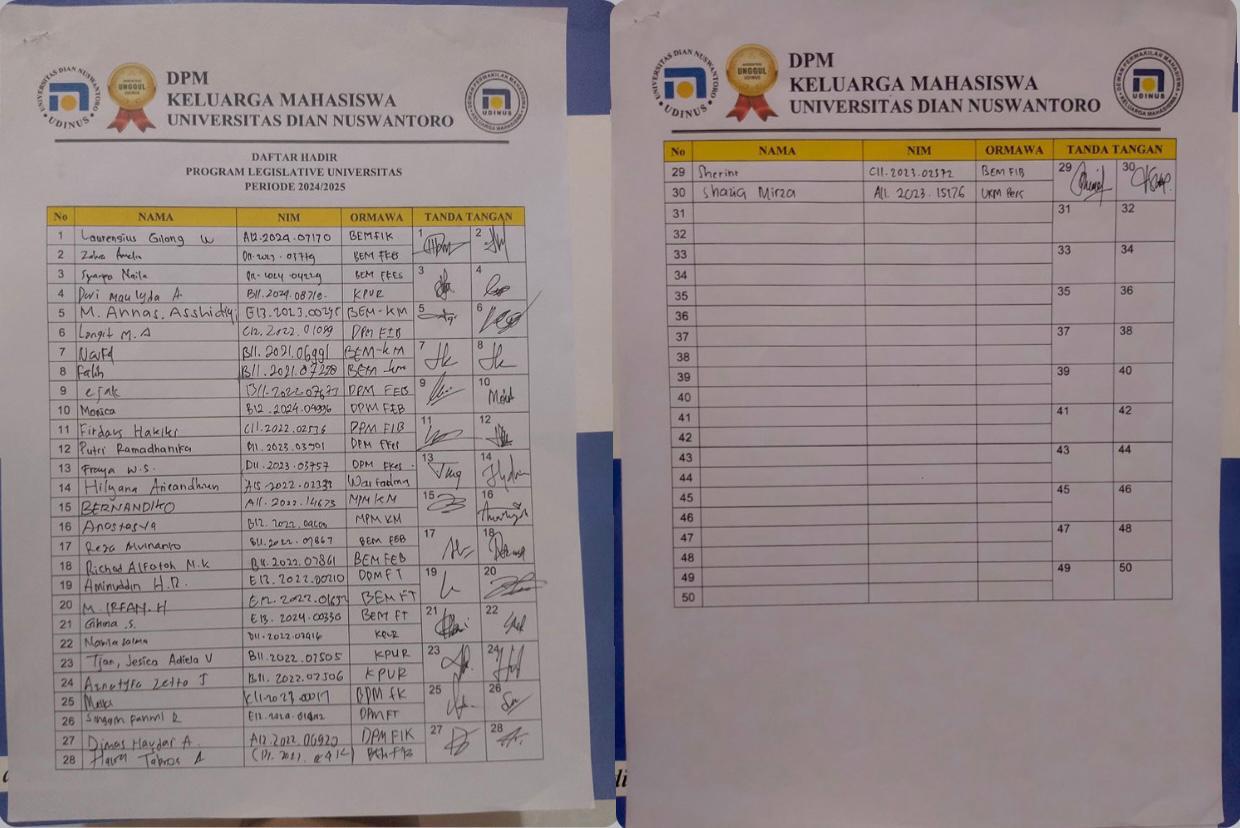 UNIVERSITAS DIAN NUSWANTORO
UDINUS
UNGGUL
DPM
KELUARGA MAHASISWA
UNIVERSITAS DIAN NUSWANTORO
DEWAN PERWAKILAN MAHASISWA
UDINUS
KELUARGA MAHASISWA
DAFTAR HADIR
PROGRAM LEGISLATIVE UNIVERSITAS
PERIODE 2024/2025
No NAMA NIM ORMAWA TANDA TANGAN
1 Laurensius Gilang W A12.2024.07170 BEMFIK 1 2
2 Zahra Amelia BEM FEB
3 Naila 3 4
4 Devi Maulyda A KPUR
5 M. Annas. Asshidiq E13.2023.00295 BEM-KM 5 6
6 Langit M.A C12.2022.01089 DPM FIB
7 Naufal B11.2021.06991 BEM-KM 7 8
8 Falih B11.2021.07258 BEM-km
9 DPM FEB 9 10
10 Monica B12.2024.04996 DPM FEB
11 Firdaus Hakiki C11.2022.02576 DPM FIB 11 12
12 Putri Ramadhanika D11.2023.03501 DPM FKes
13 Freya W.S. D11.2023.03757 DPM FKes. 13 14
14 Hilyana
15 BERNANDIKO A11.2022.14673 MPM KM 15 16
16 Anastasya MPM KM
17 Reza B11.2022.07867 BEM FEB 17 18
18 Richad Alfatah M.K B11.2022.07861 BEM FEB
19 Aminuddin H.R. E12.2022.00210 DPM FT 19 20
20 M. IRFAN. H BEM FT
21 Ghina .S. E13.2024.00330 BEM FT 21 22
22 Nabila salma D11.2022.07416 KPUR
23 Tjan, Jesica Adiela V B11.2022.07505 KPUR 23 24
24 B11.2022.07506 KPUR
25 25 26
26 DPM FT
27 Dimas Haydar A. A12.2022.06920 DPM FIK 27 28
28 BEM FIB
UNIVERSITAS DIAN NUSWANTORO
UDINUS
UNGGUL
DPM
KELUARGA MAHASISWA
UNIVERSITAS DIAN NUSWANTORO
DEWAN PERWAKILAN MAHASISWA
UDINUS
KELUARGA MAHASISWA
No NAMA NIM ORMAWA TANDA TANGAN
29 Sherine C11.2023.02572 BEM FIB 29 30
30 Shazia Mirza A11.2023.15176 UKM Pers
31 31 32
32
33 33 34
34
35 35 36
36
37 37 38
38
39 39 40
40
41 41 42
42
43 43 44
44
45 45 46
46
47 47 48
48
49 49 50
50